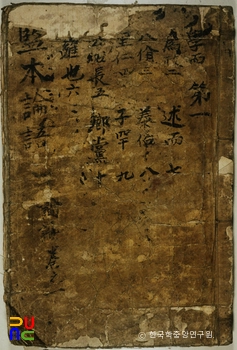 學而 第一
爲政二 述而 七
八佾三 泰伯 八
里仁四 子罕 九
公冶長五 鄕黨 十
雍也六
監本論語
© 한국학중앙연구원